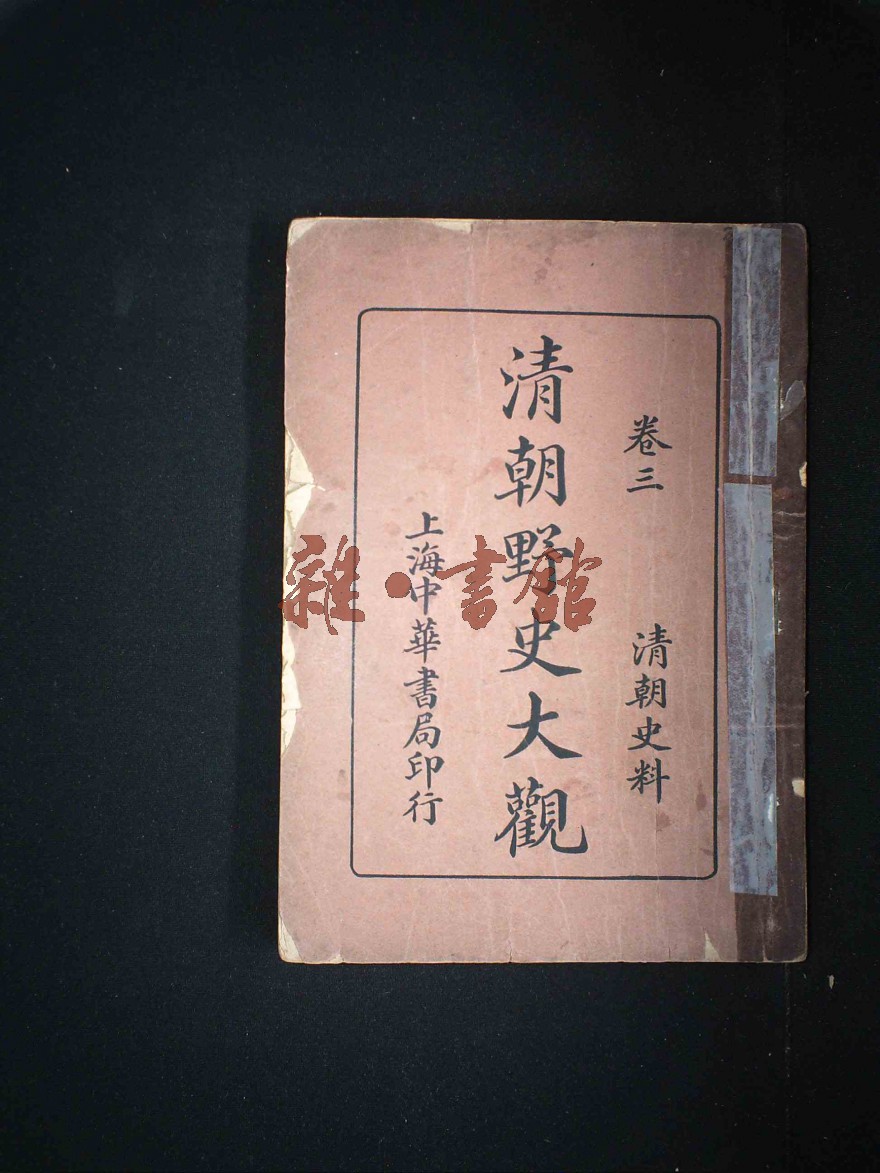 卷三 清朝史料
清朝野史大觀
上海中華書局印行
雜·書館